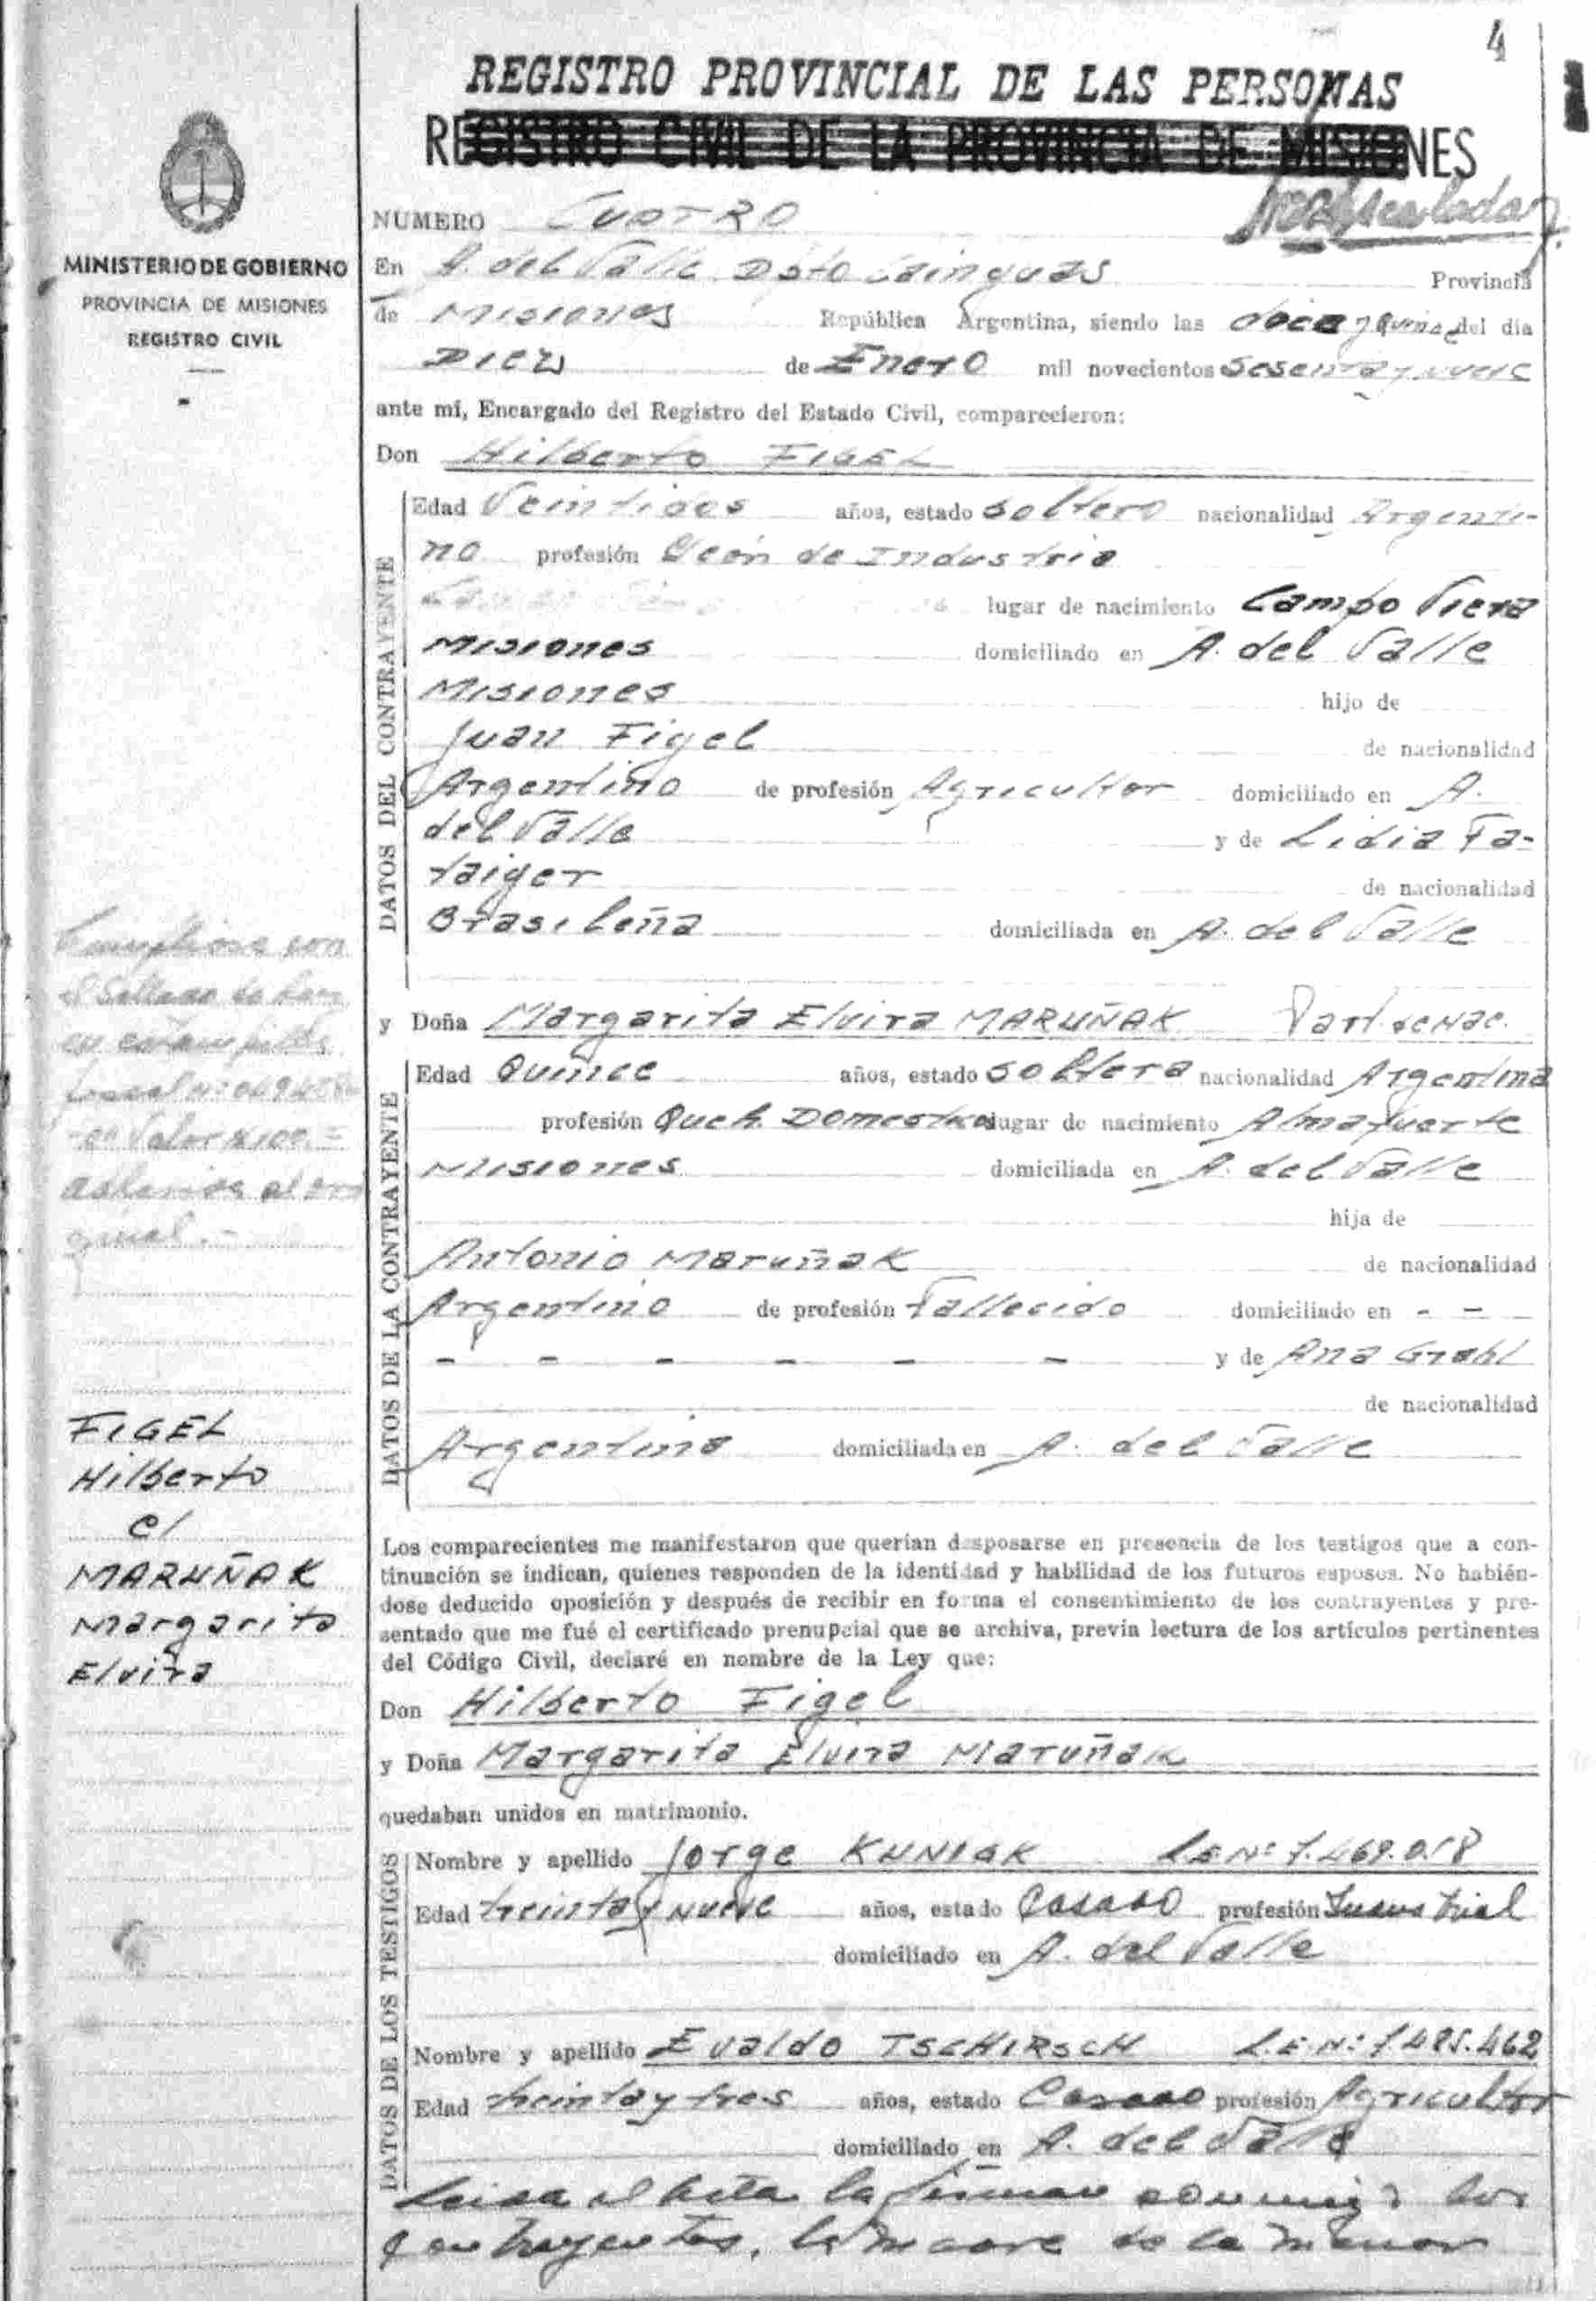 4
REGISTRO PROVINCIAL DE LAS PERSONAS
REGISTRO CIVIL DE LA PROVINCIA DE MISIONES
MINISTERIO DE GOBIERNO
PROVINCIA DE MISIONES
REGISTRO CIVIL
NUMERO CUATRO
En A. del Valle Dpto Cainguas Provincia
de Misiones República Argentina, siendo las doce y quince del día
Diez de Enero mil novecientos sesenta y nueve
ante mí, Encargado del Registro del Estado Civil, comparecieron:
Don Hilberto FIGEL
DATOS DEL CONTRAYENTE
Edad Veintidos años, estado soltero nacionalidad Argenti-
no profesión Peón de Industria
lugar de nacimiento Campo Viera
Misiones domiciliado en A. del Valle
Misiones hijo de
Juan Figel de nacionalidad
Argentino de profesión Agricultor domiciliado en A.
del Valle y de Lidia Ta-
taiger de nacionalidad
Brasileña domiciliada en A. del Valle
y Doña Margarita Elvira MARUÑAK
DATOS DE LA CONTRAYENTE
Edad Quince años, estado soltera nacionalidad Argentina
profesión Queh. Domesticos lugar de nacimiento Almafuerte
Misiones domiciliada en A. del Valle
hija de
Antonio Maruñak de nacionalidad
Argentino de profesión Fallecido domiciliado en - -
- - - - - - y de Ana Grahl
de nacionalidad
Argentina domiciliada en A. del Valle
Cumpliose con
el Sellado de Ley
en estampilla
fiscal
Valor $ 100.=
adherida al ori
ginal.-
FIGEL
Hilberto
c/
MARUÑAK
Margarita
Elvira
Los comparecientes me manifestaron que querían desposarse en presencia de los testigos que a con-
tinuación se indican, quienes responden de la identidad y habilidad de los futuros esposos. No habién-
dose deducido oposición y después de recibir en forma el consentimiento de los contrayentes y pre-
sentado que me fué el certificado prenupcial que se archiva, previa lectura de los artículos pertinentes
del Código Civil, declaré en nombre de la Ley que:
Don Hilberto Figel
y Doña Margarita Elvira Maruñak
quedaban unidos en matrimonio.
DATOS DE LOS TESTIGOS
Nombre y apellido Jorge KUNIAK L.E.Nº 7.469.018
Edad treinta y nueve años, estado Casado profesión Industrial
domiciliado en A. del Valle
Nombre y apellido Evaldo TSCHIRSCH L.E.Nº 7.485.462
Edad treinta y tres años, estado Casado profesión Agricultor
domiciliado en A. del Valle
Leida el Acta la firman conmigo los
contrayentes, la madre de la menor